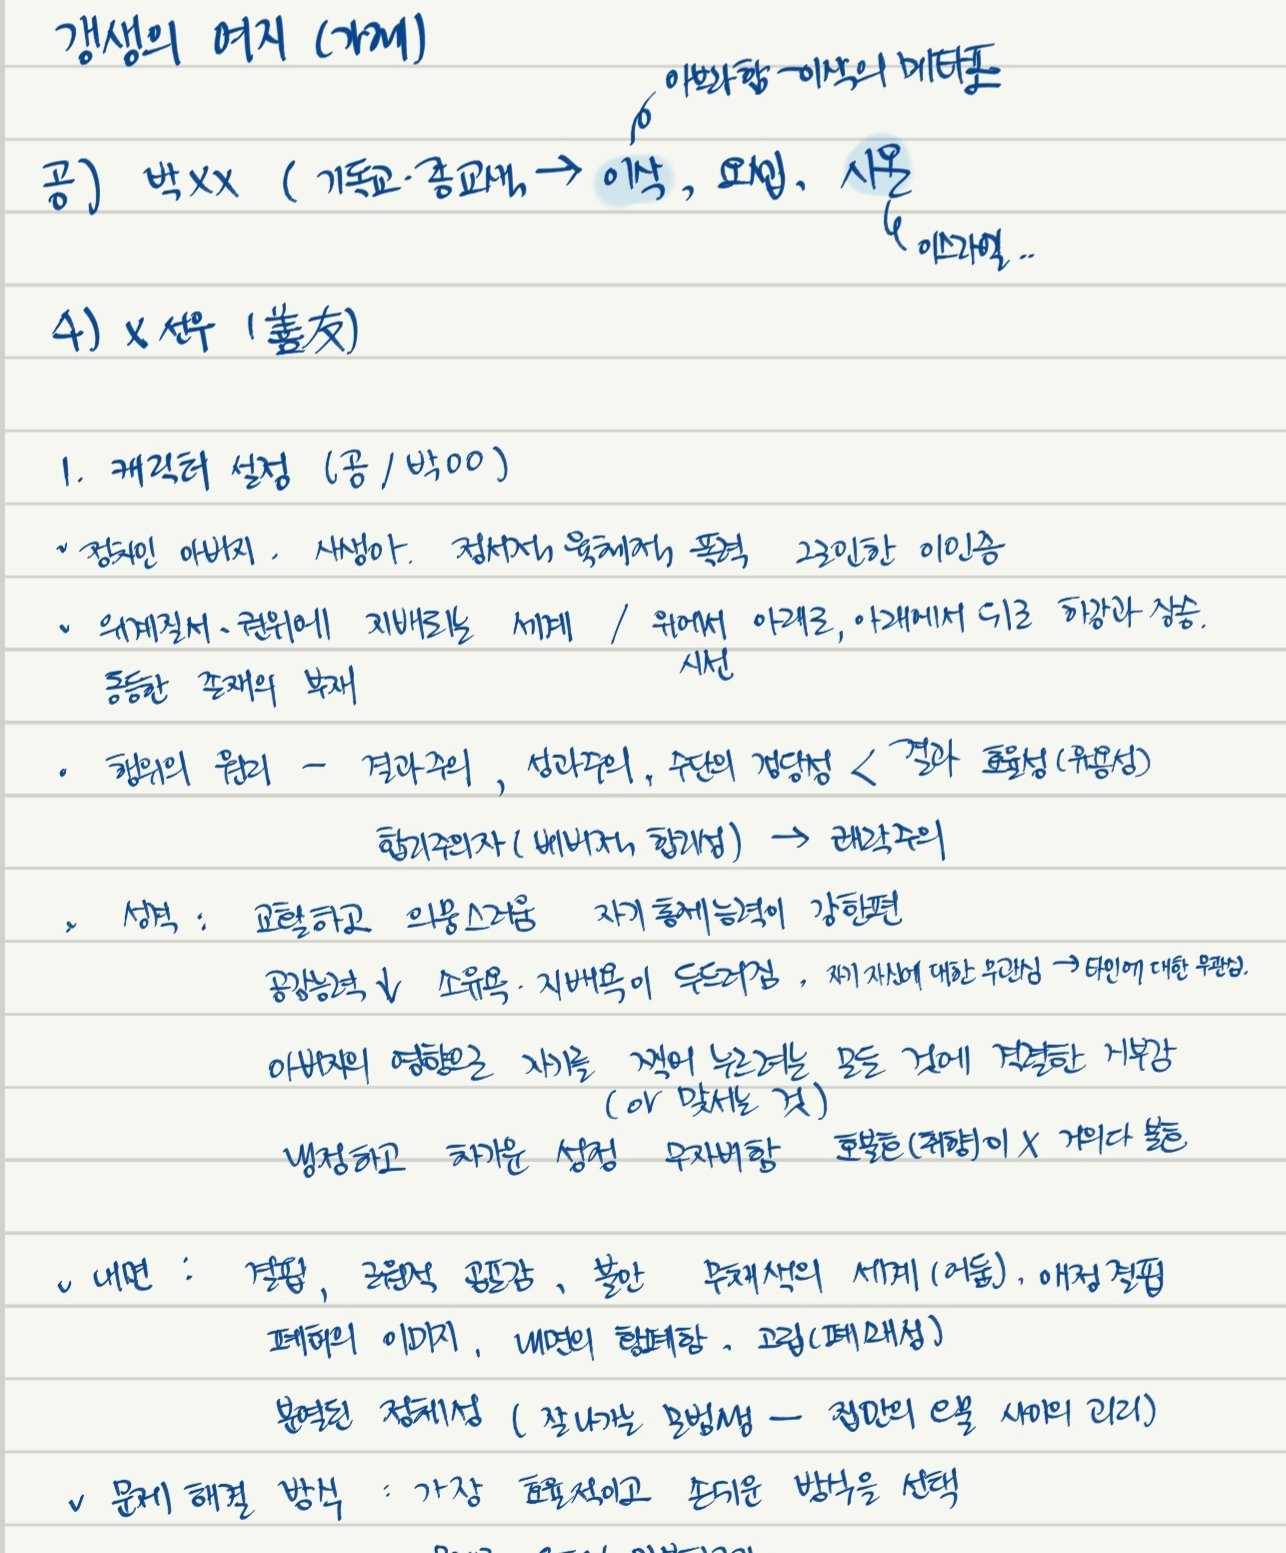 갱생의 여지 (가제)
아브라함-이삭의 메타포
공) 박XX ( 기독교·종교색 → 이삭, 요셉, 시온
이스라엘..
수) X 선우 (善友)
1. 캐릭터 설정 (공 / 박OO)
정치인 아버지. 사생아. 정서적, 육체적 폭력 그로인한 이인증
위계질서·권위에 지배되는 세계 / 위에서 아래로, 아래에서 위로 하강과 상승.
시선
동등한 존재의 부재
· 행위의 원리 - 결과주의, 성과주의, 수단의 정당성 < 결과 효율성(유용성)
합리주의자 (베버적 합리성) → 쾌락주의
성격 : 교활하고 의뭉스러움 자기통제능력이 강한편
공감능력↓ 소유욕·지배욕이 두드러짐, 자기 자신에 대한 무관심 → 타인에 대한 무관심.
아버지의 영향으로 자기를 찍어 누르려는 모든 것에 격렬한 거부감
(or 맞서는 것)
냉정하고 차가운 성정 무자비함 호불호(취향)이 X 거의다 불호
내면 : 결핍, 근원적 공포감, 불안 무채색의 세계(어둠), 애정결핍
폐허의 이미지, 내면의 황폐함, 고립(폐쇄성)
분열된 정체성 ( 잘나가는 모범생 - 집안의 오물 사이의 괴리)
문제 해결 방식 : 가장 효율적이고 손쉬운 방식을 선택